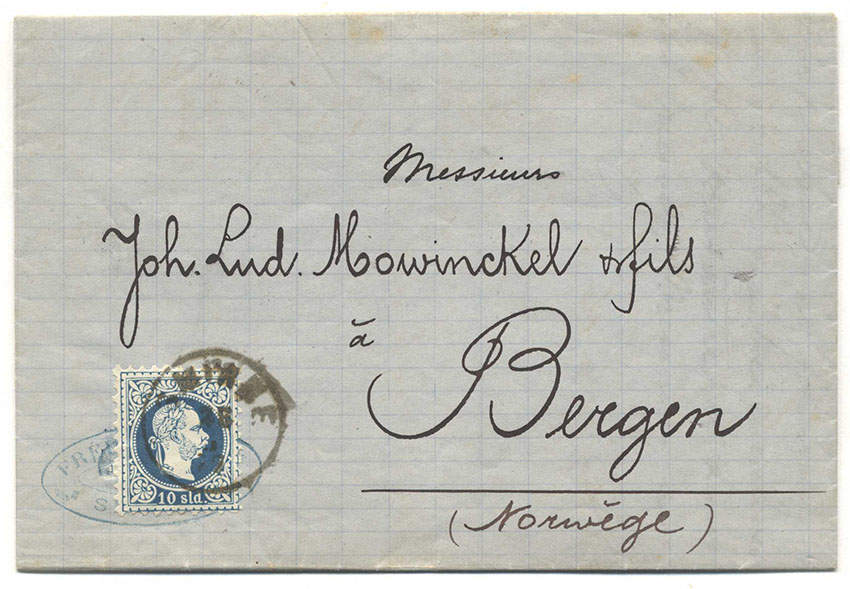 Messieurs
Joh. Lud. Mowinckel & fils
à
Bergen
(Norwège)
10 sld.